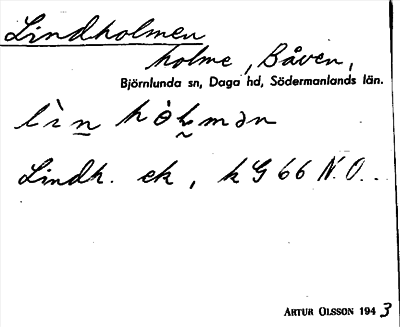 Lindholmen
holme, Båven,
Björnlunda sn, Daga hd, Södermanlands län.
Lindh. ek, kG 66 N.O..
ARTUR OLSSON 1943